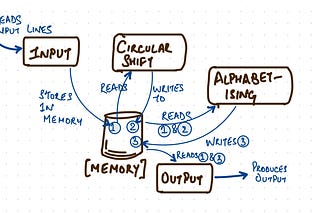 READS
INPUT LINES
INPUT
CIRCULAR
SHIFT
ALPHABET-
ISING
STORES
IN
MEMORY
READS
WRITES
TO
READS
①&②
① ②
③
WRITES ③
[MEMORY]
READS ①&③
OUTPUT
PRODUCES
OUTPUT